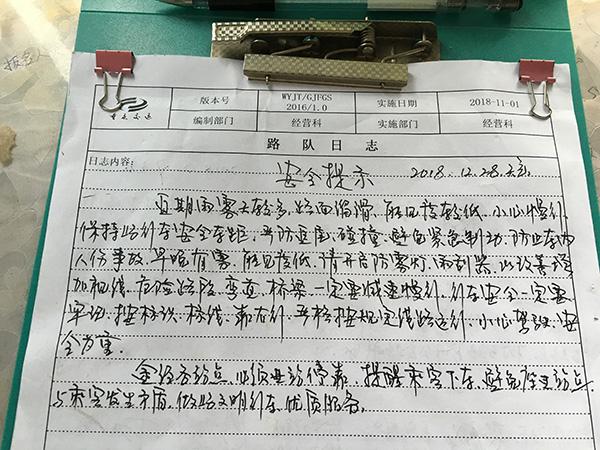 重庆交运
版本号 WYJT/GJFGS 2016/1.0 实施日期 2018-11-01
编制部门 经营科 实施部门 经营科
路队日志
日志内容:
安全提示 2018.12.28.
近期雨雾天较多,路面湿滑,能见度较低,小心慢行,
保持行车安全车距,严防追尾,碰撞,避免紧急制动,防止车内
人伤事故,早晚有雾,能见度低,请开启防雾灯,雨刮器,以改善
视线,危险路段,弯道,桥梁一定要减速慢行,行车安全一定要
牢记,按标识,标线,靠右行,严格按规定线路运行,小心驾驶,安
全为重。
途经各站点,必须进站停靠,提醒乘客下车,避免
与乘客发生矛盾,做好文明行车,优质服务。